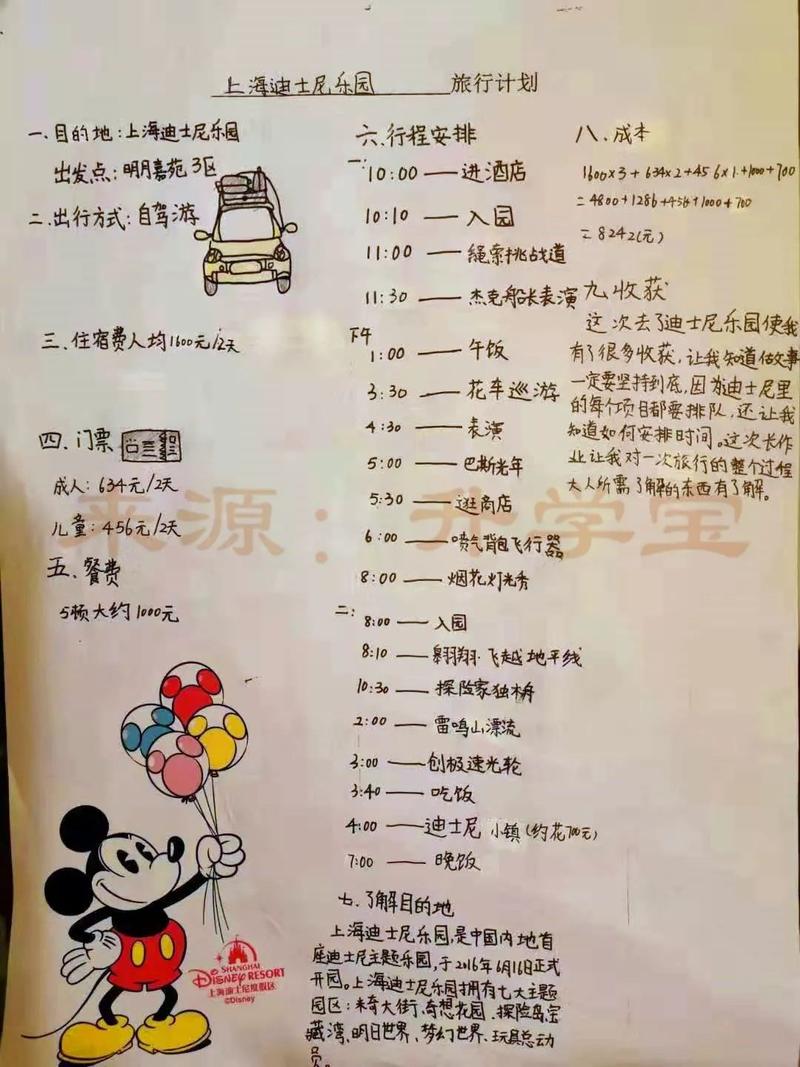 上海迪士尼乐园 旅行计划
一、目的地:上海迪士尼乐园
出发点:明月嘉苑3区
二、出行方式:自驾游
三、住宿费人均1600元/2天
四、门票
成人:634元/2天
儿童:456元/2天
五、餐费
5顿大约1000元
SHANGHAI
DISNEY RESORT
上海迪士尼度假区
©Disney
六、行程安排
一:
10:00——进酒店
10:10——入园
11:00——绳索挑战道
11:30——杰克船长表演
下午
1:00——午饭
3:30——花车巡游
4:30——表演
5:00——巴斯光年
5:30——逛商店
6:00——喷气背包飞行器
8:00——烟花灯光秀
二:
8:00——入园
8:10——翱翔·飞越地平线
10:30——探险家独木舟
2:00——雷鸣山漂流
3:00——创极速光轮
3:40——吃饭
4:00——迪士尼小镇(约花700元)
7:00——晚饭
七、了解目的地
上海迪士尼乐园,是中国内地首
座迪士尼主题乐园,于2016年6月16日正式
开园。上海迪士尼乐园拥有七大主题
园区:米奇大街、奇想花园、探险岛、宝
藏湾、明日世界、梦幻世界、玩具总动
员。
八、成本
1600×3+634×2+456×1+1000+700
=4800+1286+456+1000+700
=8242(元)
九、收获
这次去了迪士尼乐园使我
有了很多收获,让我知道做故事
一定要坚持到底,因为迪士尼里
的每个项目都要排队,还让我
知道如何安排时间。这次长作
业让我对一次旅行的整个过程
大人所需了解的东西有了解。
来源:升学宝